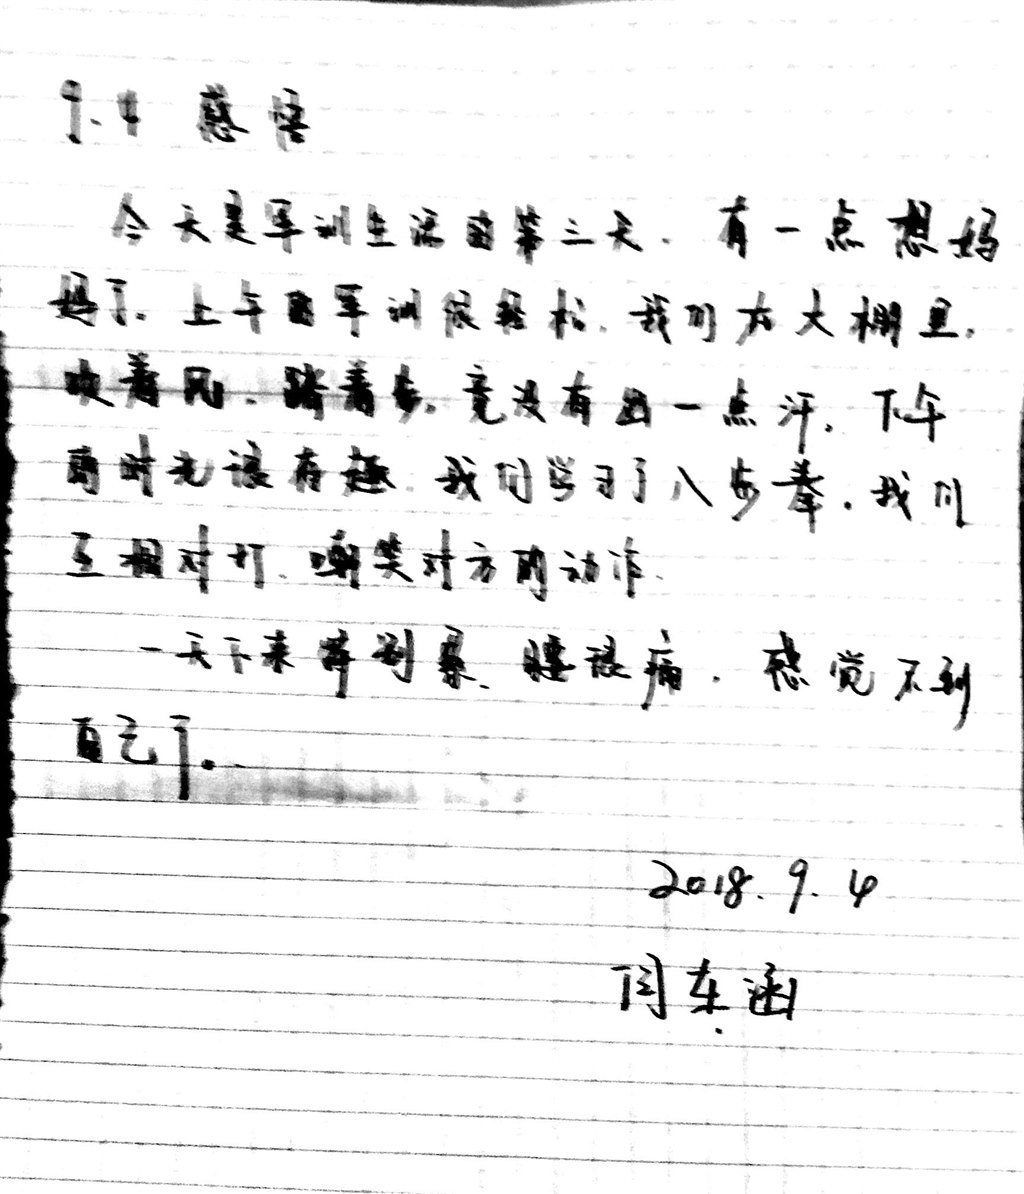 9.4 感悟
今天是军训生活的第三天.有一点想妈
妈了.上午的军训很轻松.我们在大棚里.
吹着风.踏着步.竟没有出一点汗.下午
的时光很有趣.我们学习了八步拳.我们
互相对打.嘲笑对方的动作.
一天下来特别累、腿很痛.感觉不到
自己了。
2018.9.4
闫东涵